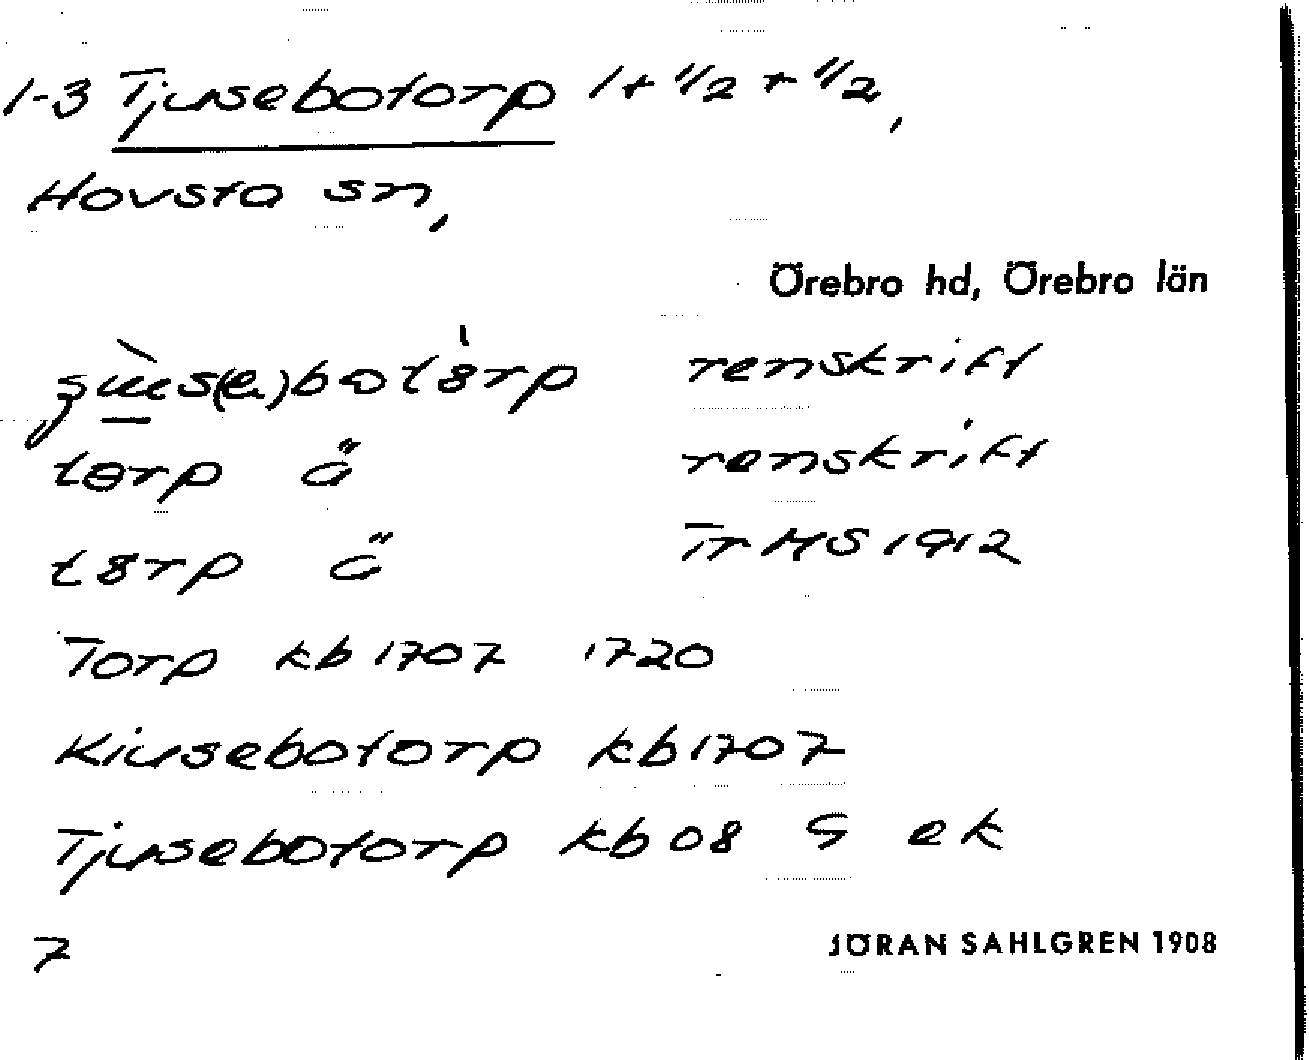 1-3 Tjusebotorp 1 + 1/2 + 1/2,
Hovsta sn,
Örebro hd, Örebro län
renskrift
torp renskrift
Tr HS 1912
Torp kb 1707 1720
Kiusebotorp kb 1707
Tjusebotorp kb 08 G ek
7
JÖRAN SAHLGREN 1908